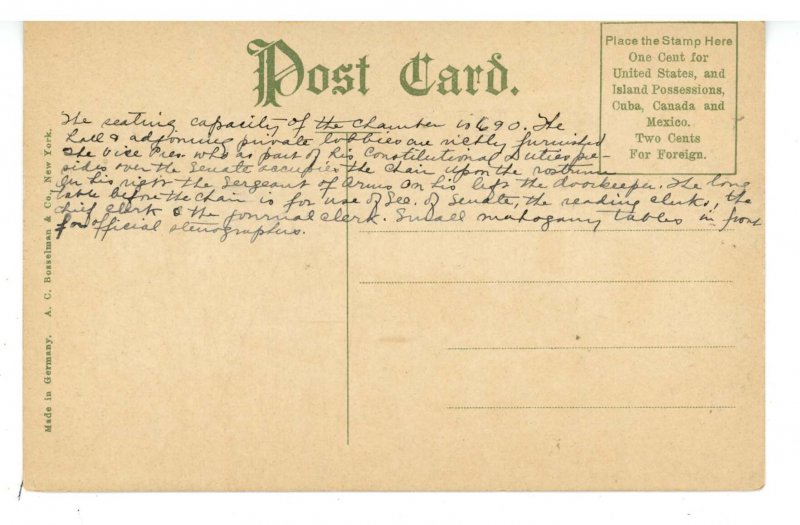 Post Card.
Place the Stamp Here
One Cent for
United States, and
Island Possessions,
Cuba, Canada and
Mexico.
Two Cents
For Foreign.
The seating capacity of the Chamber is 690. The
hall & adjoining private lobbies are richly furnished
The Vice Pres. who as part of his Constitutional Duties pre-
sides over the Senate occupies the Chair upon the rostrum
On his right the Sergeant of Arms on his left the doorkeeper. The long
table before the Chair is for use of Sec. of Senate, the reading clerks, the
chief clerk & the journal clerk. Small mahogany tables in front
for official stenographers.
Made in Germany. A. C. Bosselman & Co., New York.